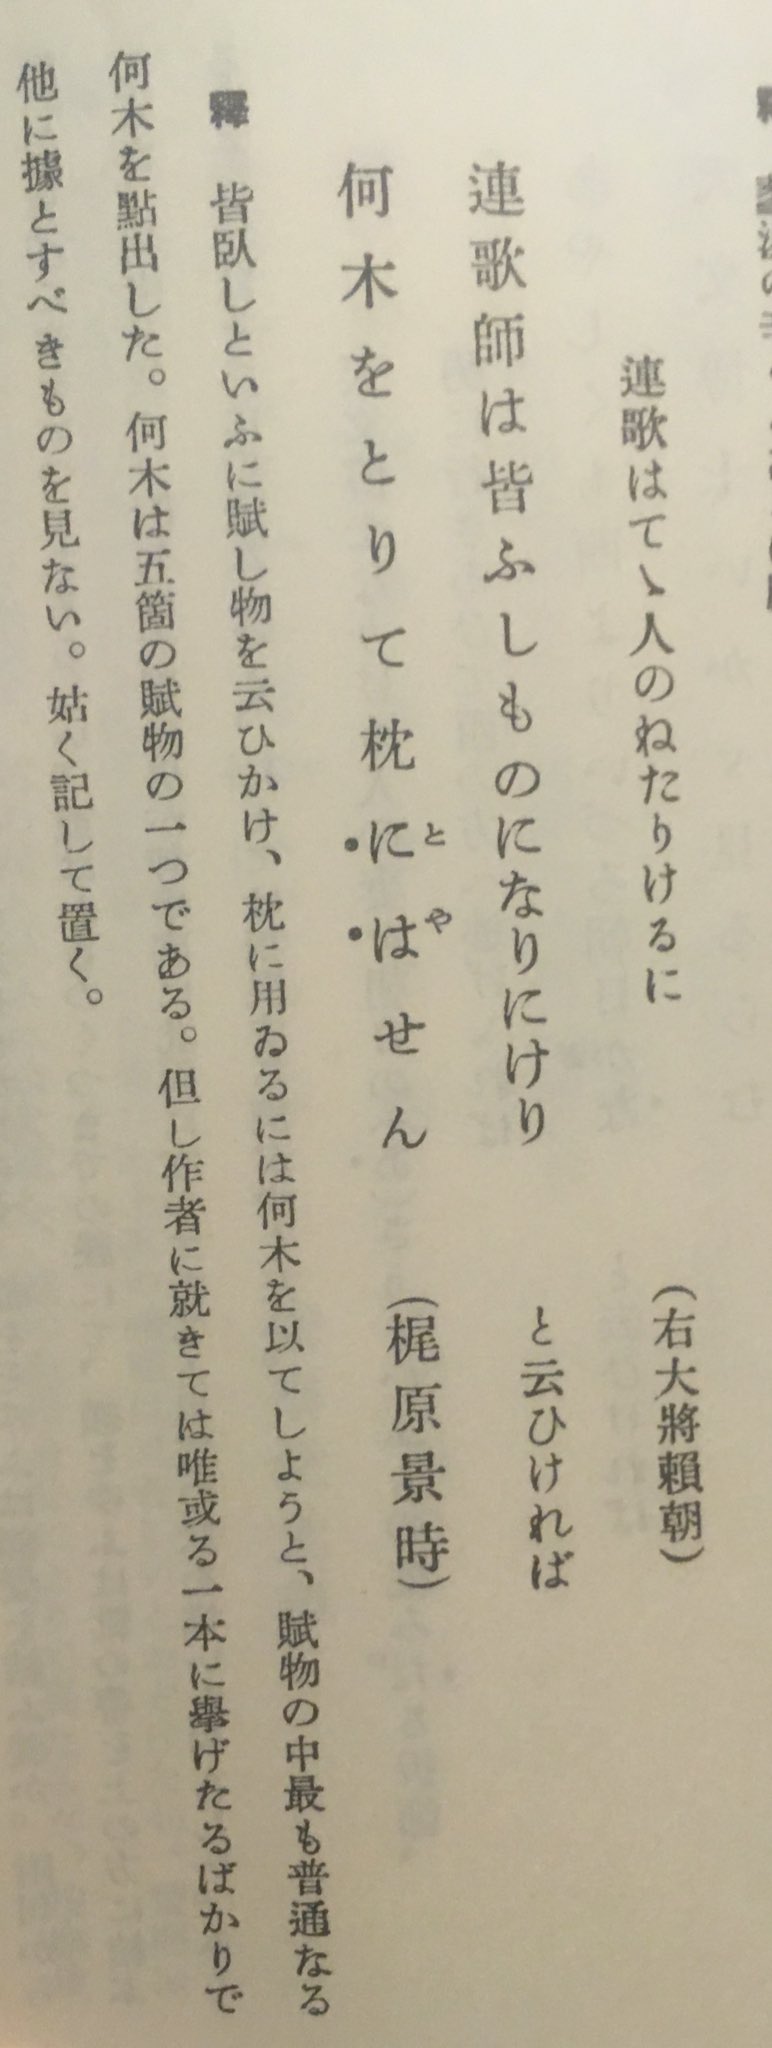 連歌はてゝ人のねたりけるに
(右大將賴朝)
連歌師は皆ふしものになりにけり
と云ひければ
何木をとりて枕にはせん
とや
(梶原景時)
釋 皆臥しといふに賦し物を云ひかけ、枕に用ゐるには何木を以てしようと、賦物の中最も普通なる
何木を點出した。何木は五箇の賦物の一つである。但し作者に就きては唯或る一本に擧げたるばかりで
他に據とすべきものを見ない。姑く記して置く。